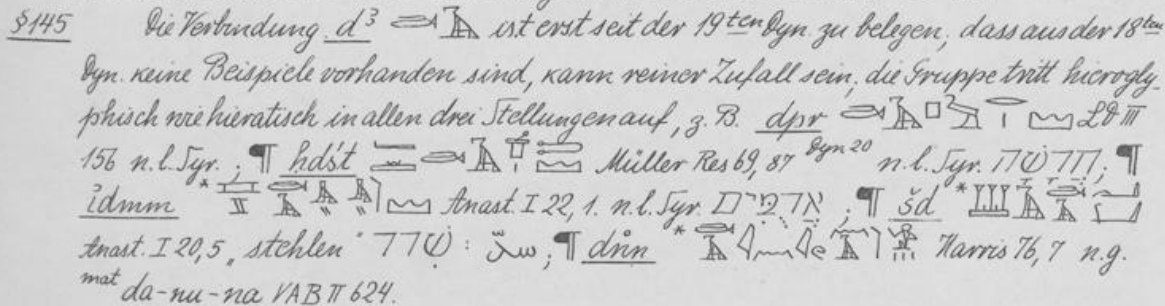 §145 Die Verbindung d³ ist erst seit der 19ten Dyn. zu belegen; dass aus der 18ten
Dyn. keine Beispiele vorhanden sind, kann reiner Zufall sein; die Gruppe tritt hierogly-
phisch wie hieratisch in allen drei Stellungen auf, z. B. dpr LD III
156 n. l. Syr.; ¶ ḫdśt Müller Res 69, 87 Dyn 20 n. l. Syr. חדשה; ¶
idmm * Anast. I 22, 1. n. l. Syr. אדמים; ¶ šd *
Anast. I 20, 5 „stehlen“ שדד : ; ¶ dnn * Harris 76, 7 n. g.
mat da-nu-na VAB II 624.